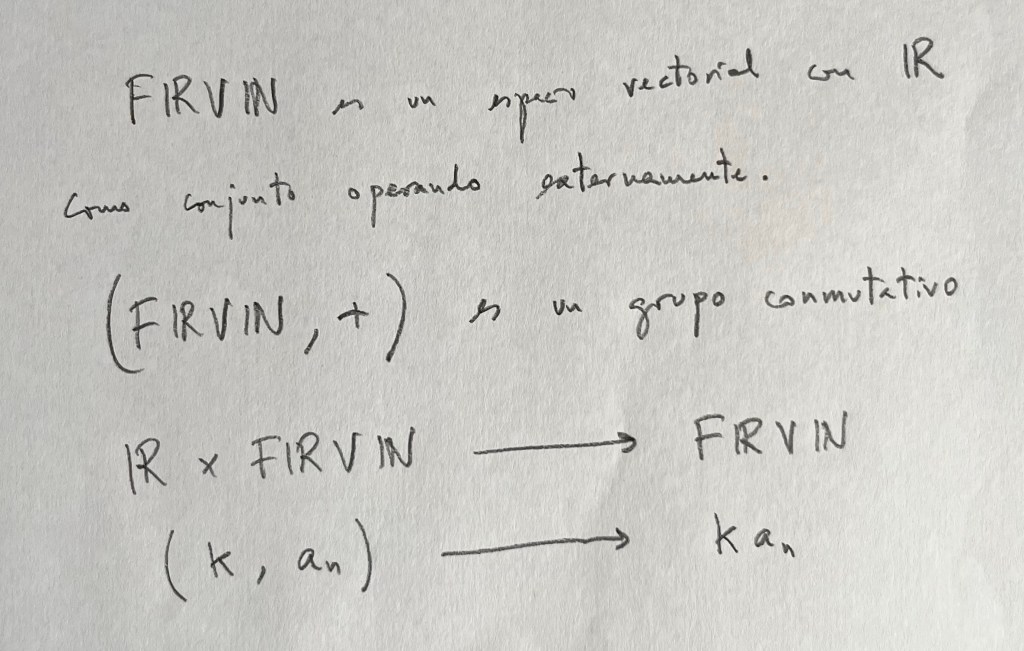 FℝVℕ es un espacio vectorial con ℝ
como conjunto operando externamente.
(FℝVℕ, +) es un grupo conmutativo
ℝ x FℝVℕ ⟶ FℝVℕ
(k, aₙ) ⟶ k aₙ